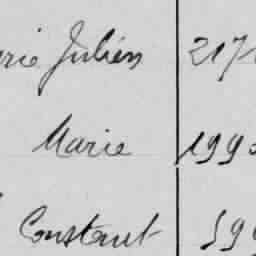 Julien 217
Marie 199
Constant 599